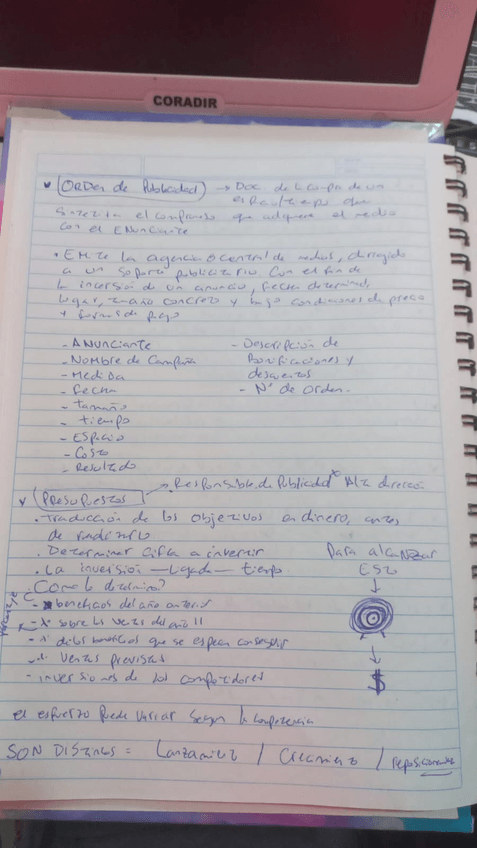 CORADIR
Orden de Publicidad → Doc. de la compra de un
espacio/tiempo que
Sintetiza el compromiso que adquiere el medio
con el Enunciante
• Emite la agencia o central de medios, dirigido
a un soporte publicitario. Con el fin de
la inserción de un anuncio, fecha determinada,
lugar, tamaño concreto y bajo condiciones de precio
y formas de pago
- ANUNCIANTE
- Nombre de Campaña
- Medida
- fecha
- tamaño
- tiempo
- Espacio
- Costo
- Resultado
- Descripción de
Bonificaciones y
descuentos
- N° de Orden.
PRESUPUESTOS → Responsable de Publicidad * Alta dirección
• Traducción de los objetivos en dinero, antes
de
• Determinar cifra a invertir
• La inversión — ligada — tiempo
• Como lo determino?
- beneficios del año anterior
- % sobre las ventas del año
- % de los beneficios que se esperan conseguir
- % ventas previstas
- inversiones de los competidores
Para alcanzar
ESTO
↓
↓
$
el esfuerzo puede variar según la competencia
SON DISTINTOS = Lanzamiento / Crecimiento / reposicionamiento